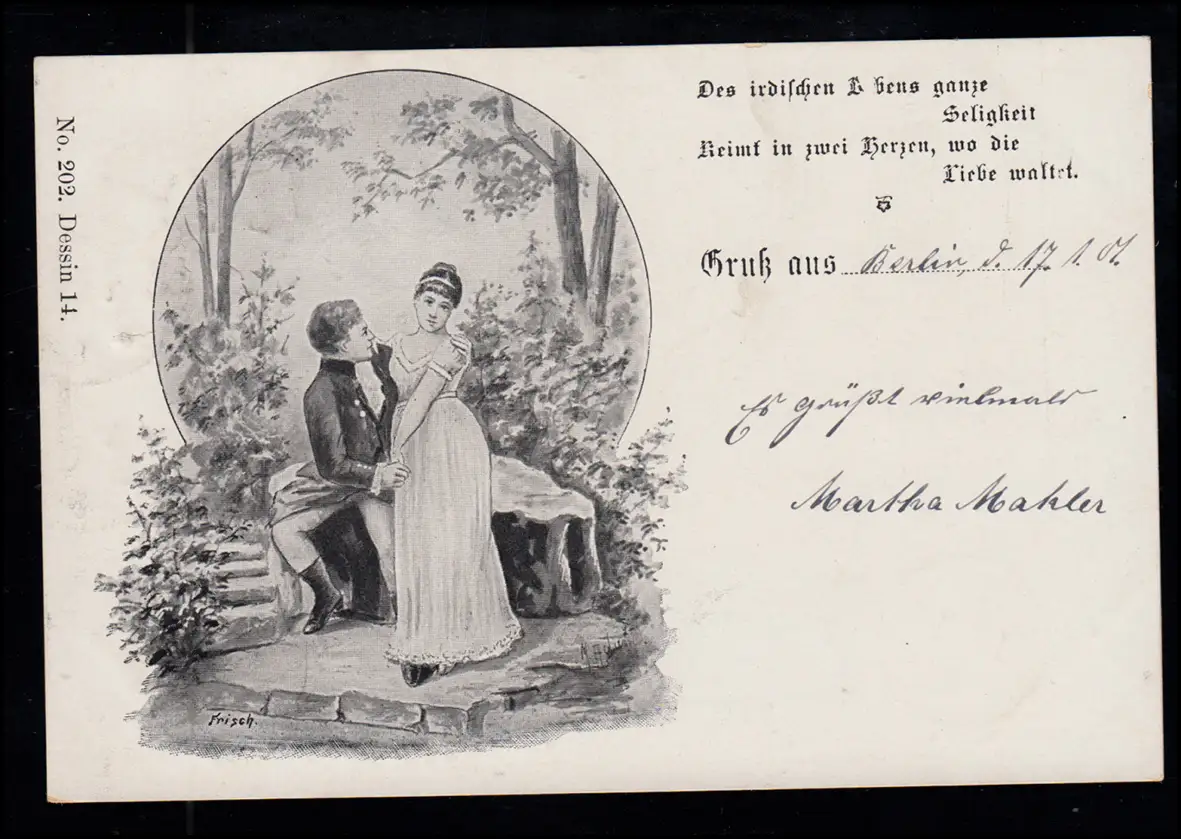 No. 202. Dessin 14.
Des irdischen L bens ganze
Seligkeit
Keimt in zwei Herzen, wo die
Liebe waltet.
Gruß aus Berlin, d. 17. 1. 01.
Es grüßt vielmals
Martha Mahler
Frisch.